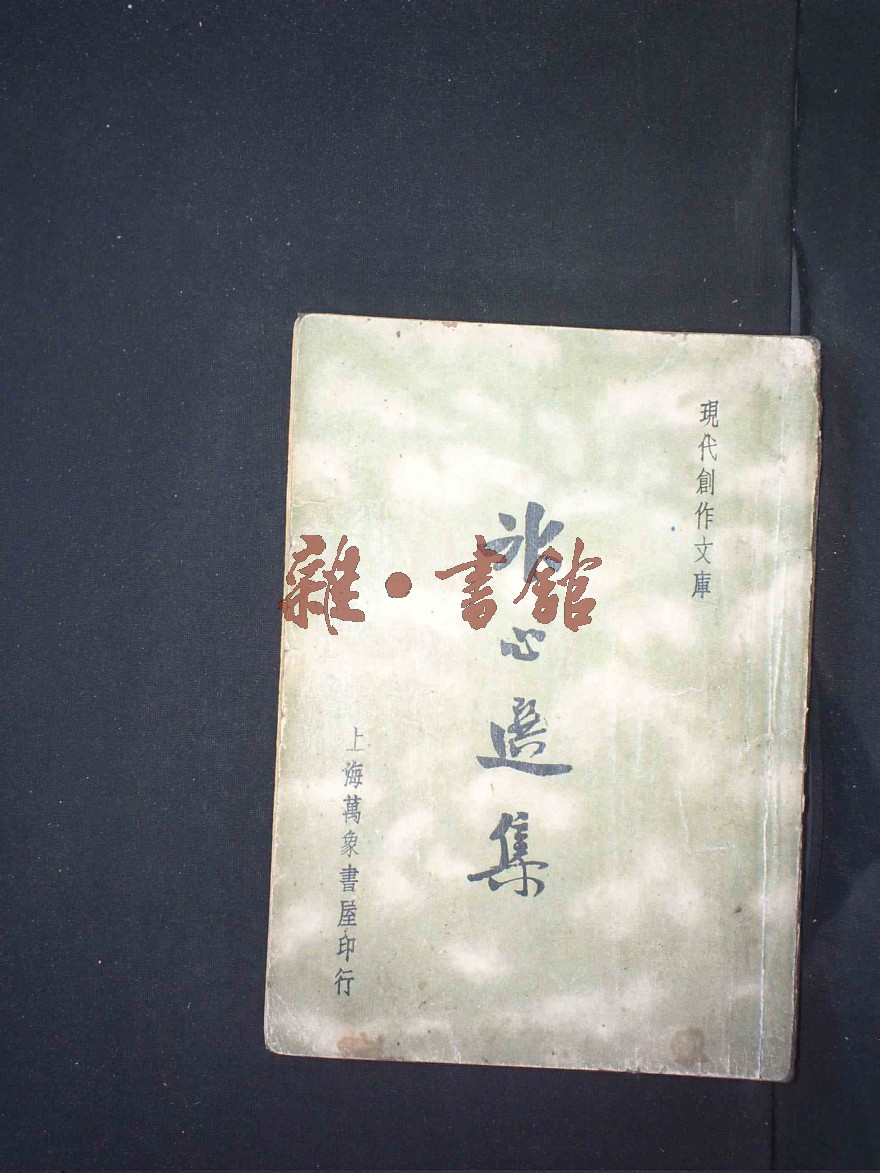 現代創作文庫
冰心選集
上海萬象書屋印行
雜·書館